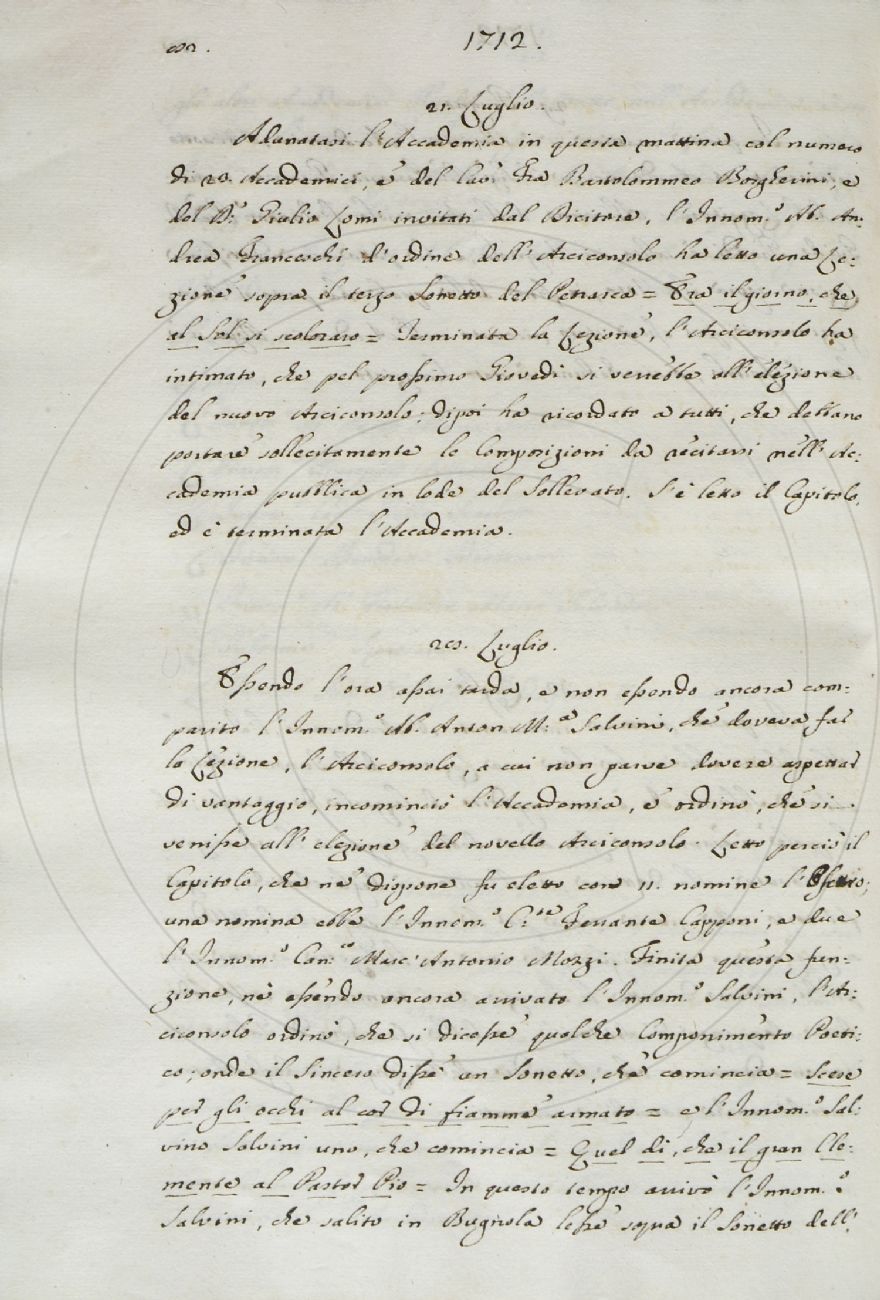 1712.
21. Luglio.
Adunatasi l'Accademia in questa mattina col numero
di 20. Accademici, e del Cav. Fra Bartolommeo Borgherini, e
del D.r Giulio Lomi invitati dal Dicitore, l'Innom.o Ab. An:
drea Franceschi d'ordine dell'Arciconsolo ha letto una Le:
zione sopra il terzo Sonetto del Petrarca = Era il giorno, che
al Sol si scoloraro = Terminata la Lezione, l'Arciconsolo ha
intimato, che pel prossimo Giovedì si verrebbe all'elezione
del nuovo Arciconsolo; dipoi ha ricordato a tutti, che debbano
portare sollecitamente le Composizioni da recitarsi nell'Ac:
cademia pubblica in lode del Sollevato. S'è letto il Capitolo,
ed è terminata l'Accademia.
Luglio.
Essendo l'ora assai tarda, e non essendo ancora com:
parito l'Innom.o Ab. Anton M.a Salvini, che doveva far
la Lezione, l'Arciconsolo, a cui non parve dovere aspettar
di vantaggio, incominciò l'Accademia, e ordinò, che si
venisse all'elezione del novello Arciconsolo. Letto perciò il
Capitolo, che ne dispone fu eletto con 11. nomine l'
una nomina ebbe l'Innom.o C.te Ferrante Capponi, e due
l'Innom.o Can.co Marc'Antonio Mozzi. Finita questa fun:
zione, nè essendo ancora arrivato l'Innom.o Salvini, l'Ar:
ciconsolo ordinò, che si dicesse qualche Componimento Poeti:
co; onde il Sincero disse un Sonetto, che comincia = Scese
per gli occhi al cor di fiamme armato = e l'Innom.o Sal:
vino Salvini uno, che comincia = Quel dì, che il gran Cle:
mente al Pastor Pio = In questo tempo arrivò l'Innom.o
Salvini, che salito in Bugnola lesse sopra il Sonetto dell'